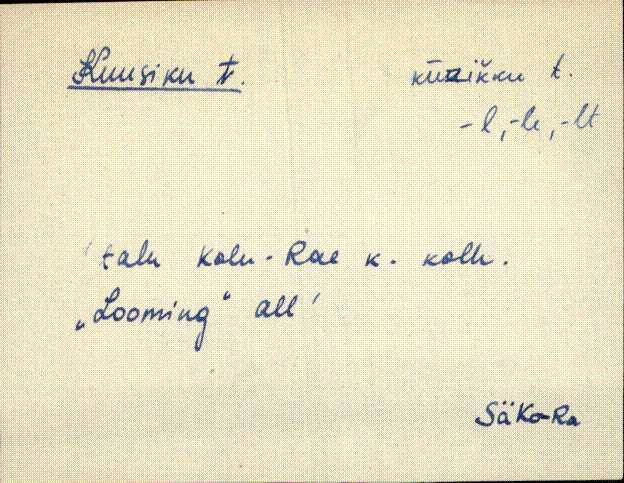 Kuusiku t. kūzikku t.
-l, -le, -lt
'talu Kolu-Rae k. kolh.
„Looming" all'
SäKo-Ra